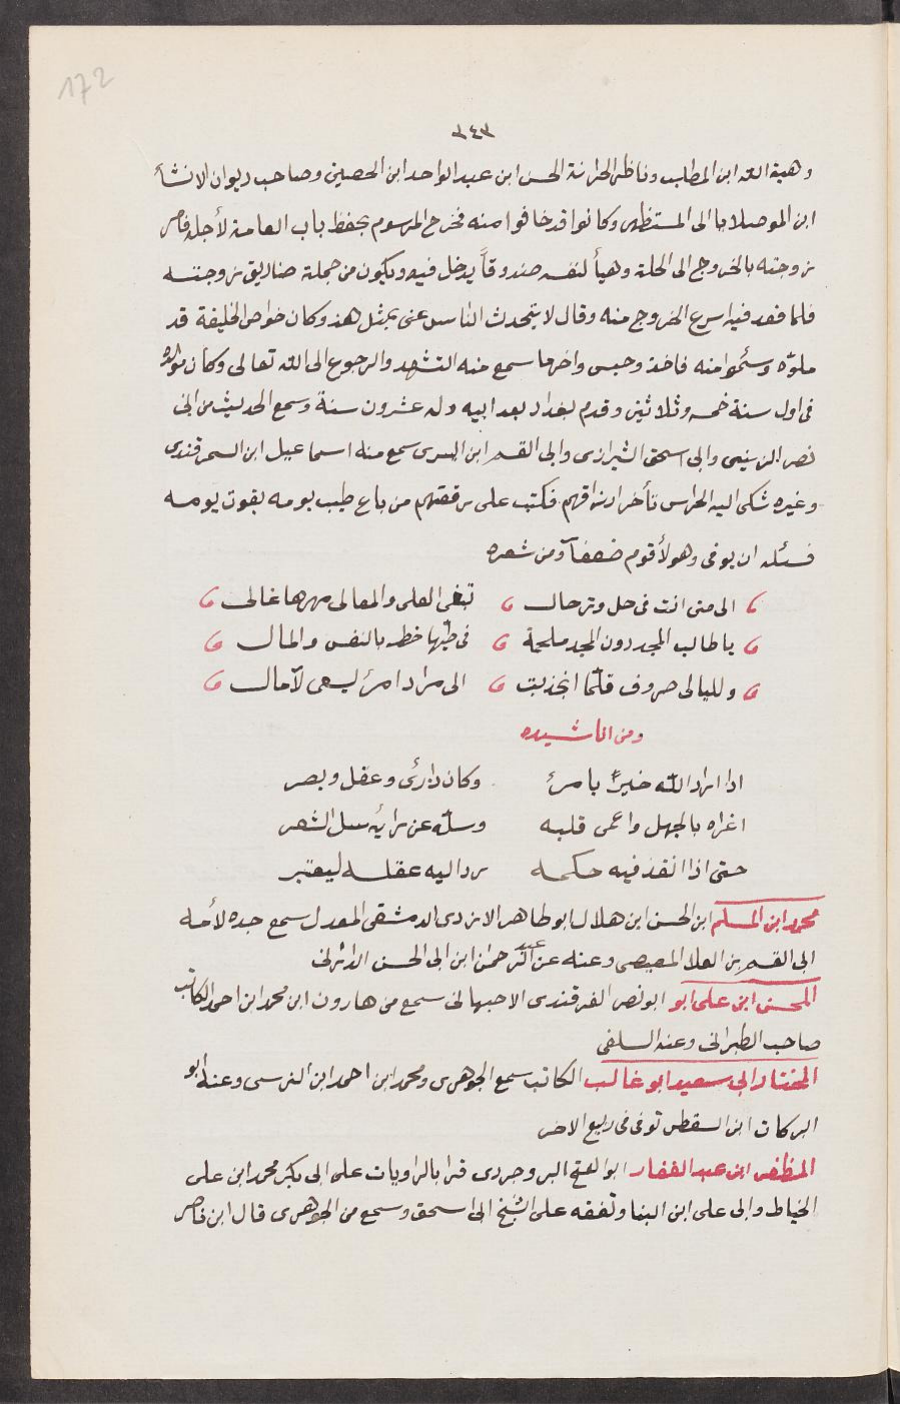 172
٣٤٣
وهبة الله ابن المطلب وناظر الخزانة الحسن ابن عبد الواحد ابن الحصين وصاحب ديوان الانشأ
ابن الموصلايا الى المستظهر وكانوا قد خافوا منه فخرج المرسوم بحفظ باب العامة لأجله فامر
زوجته بالخروج الى الحلة وهيأ لنفسه صندوقاً يدخل فيه ويكون من جملة صناديق زوجته
فلما قعد فيه اسرع الخروج منه وقال لا يتحدث الناس عنى بمثل هذ وكان خواص الخليفة قد
ملوّه وسئموا منه فاخذ وحبس واخر ما سمع منه التشهد والرجوع الى الله تعالى وكان مولده
فى اول سنة خمسه وثلاثين وقدم بغداد بعد ابيه وله عشرون سنة وسمع الحديث من ابى
نصر الزينبى وابى اسحق الشيرازى وابى القسم ابن البسرى سمع منه اسماعيل ابن السمرقندى
وغيره شكى اليه الحراس تأخر ارزاقهم فكتب على رقعتهم من باع طيب يومه بقوت يومه
فسئله ان يوفى وهولأ قوم ضعفآ ومن شعره
الى متى انت فى حل وترحال تبغى العلى والمعالى مهرها غالى
ياطالب المجد دون المجد ملحمة فى طيّها خطر بالنفس والمال
ولليالى صروف قلّما انجذبت الى مراد امرئ يسعى لآمال
ومن اناشيده
اذا اراد الله خيرًا بامرئ وكان ذا رئى وعقل وبصر
اغراه بالجهل واعمى قلبه وسلّه عن رائه سل الشعر
حتى اذا انفذ فيه حكمه رد اليه عقله ليعتبر
محمد ابن المسلم ابن الحسن ابن هلال ابو طاهر الازدى الدمشقى المعدل سمع جده لأمه
ابى القسم بن العلا المصيصى وعنه عبد الرحمن ابن ابى الحسن الدارانى
المحسن ابن على ابو ابو نصر الفرقندى الاصبهانى سمع من هارون ابن محمد ابن احمد الكاتب
صاحب الطبرانى وعنه السلفى
المختار ابن سعيد ابو غالب الكاتب سمع الجوهرى ومحمد ابن احمد ابن النرسى وعنه ابو
البركات ابن السقطى توفى فى ربيع الاخر
المظفر ابن عبد الغفار ابو الفتح البروجردى قرا بالراويات على ابى بكر محمد ابن على
الخياط وابى على ابن البنا وتفقه على الشيخ ابى اسحق وسمع من الجوهرى قال ابن ناصر